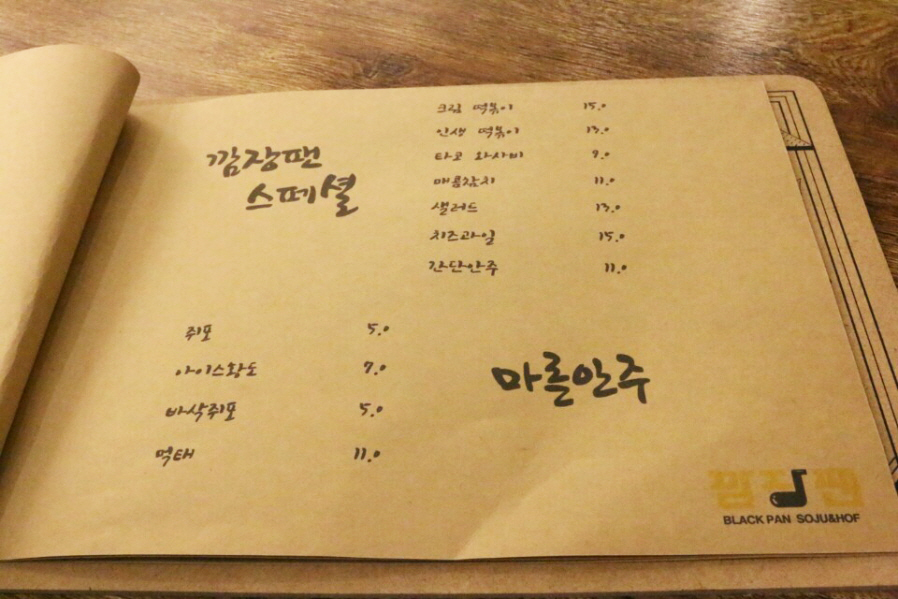 깜장팬
스페셜
크림 떡볶이 15.0
인생 떡볶이 13.0
타코 와사비 9.0
매콤참치 11.0
샐러드 13.0
치즈과일 15.0
간단안주 11.0
쥐포 5.0
아이스황도 7.0
바삭쥐포 5.0
먹태 11.0
마른안주
BLACK PAN SOJU&HOF